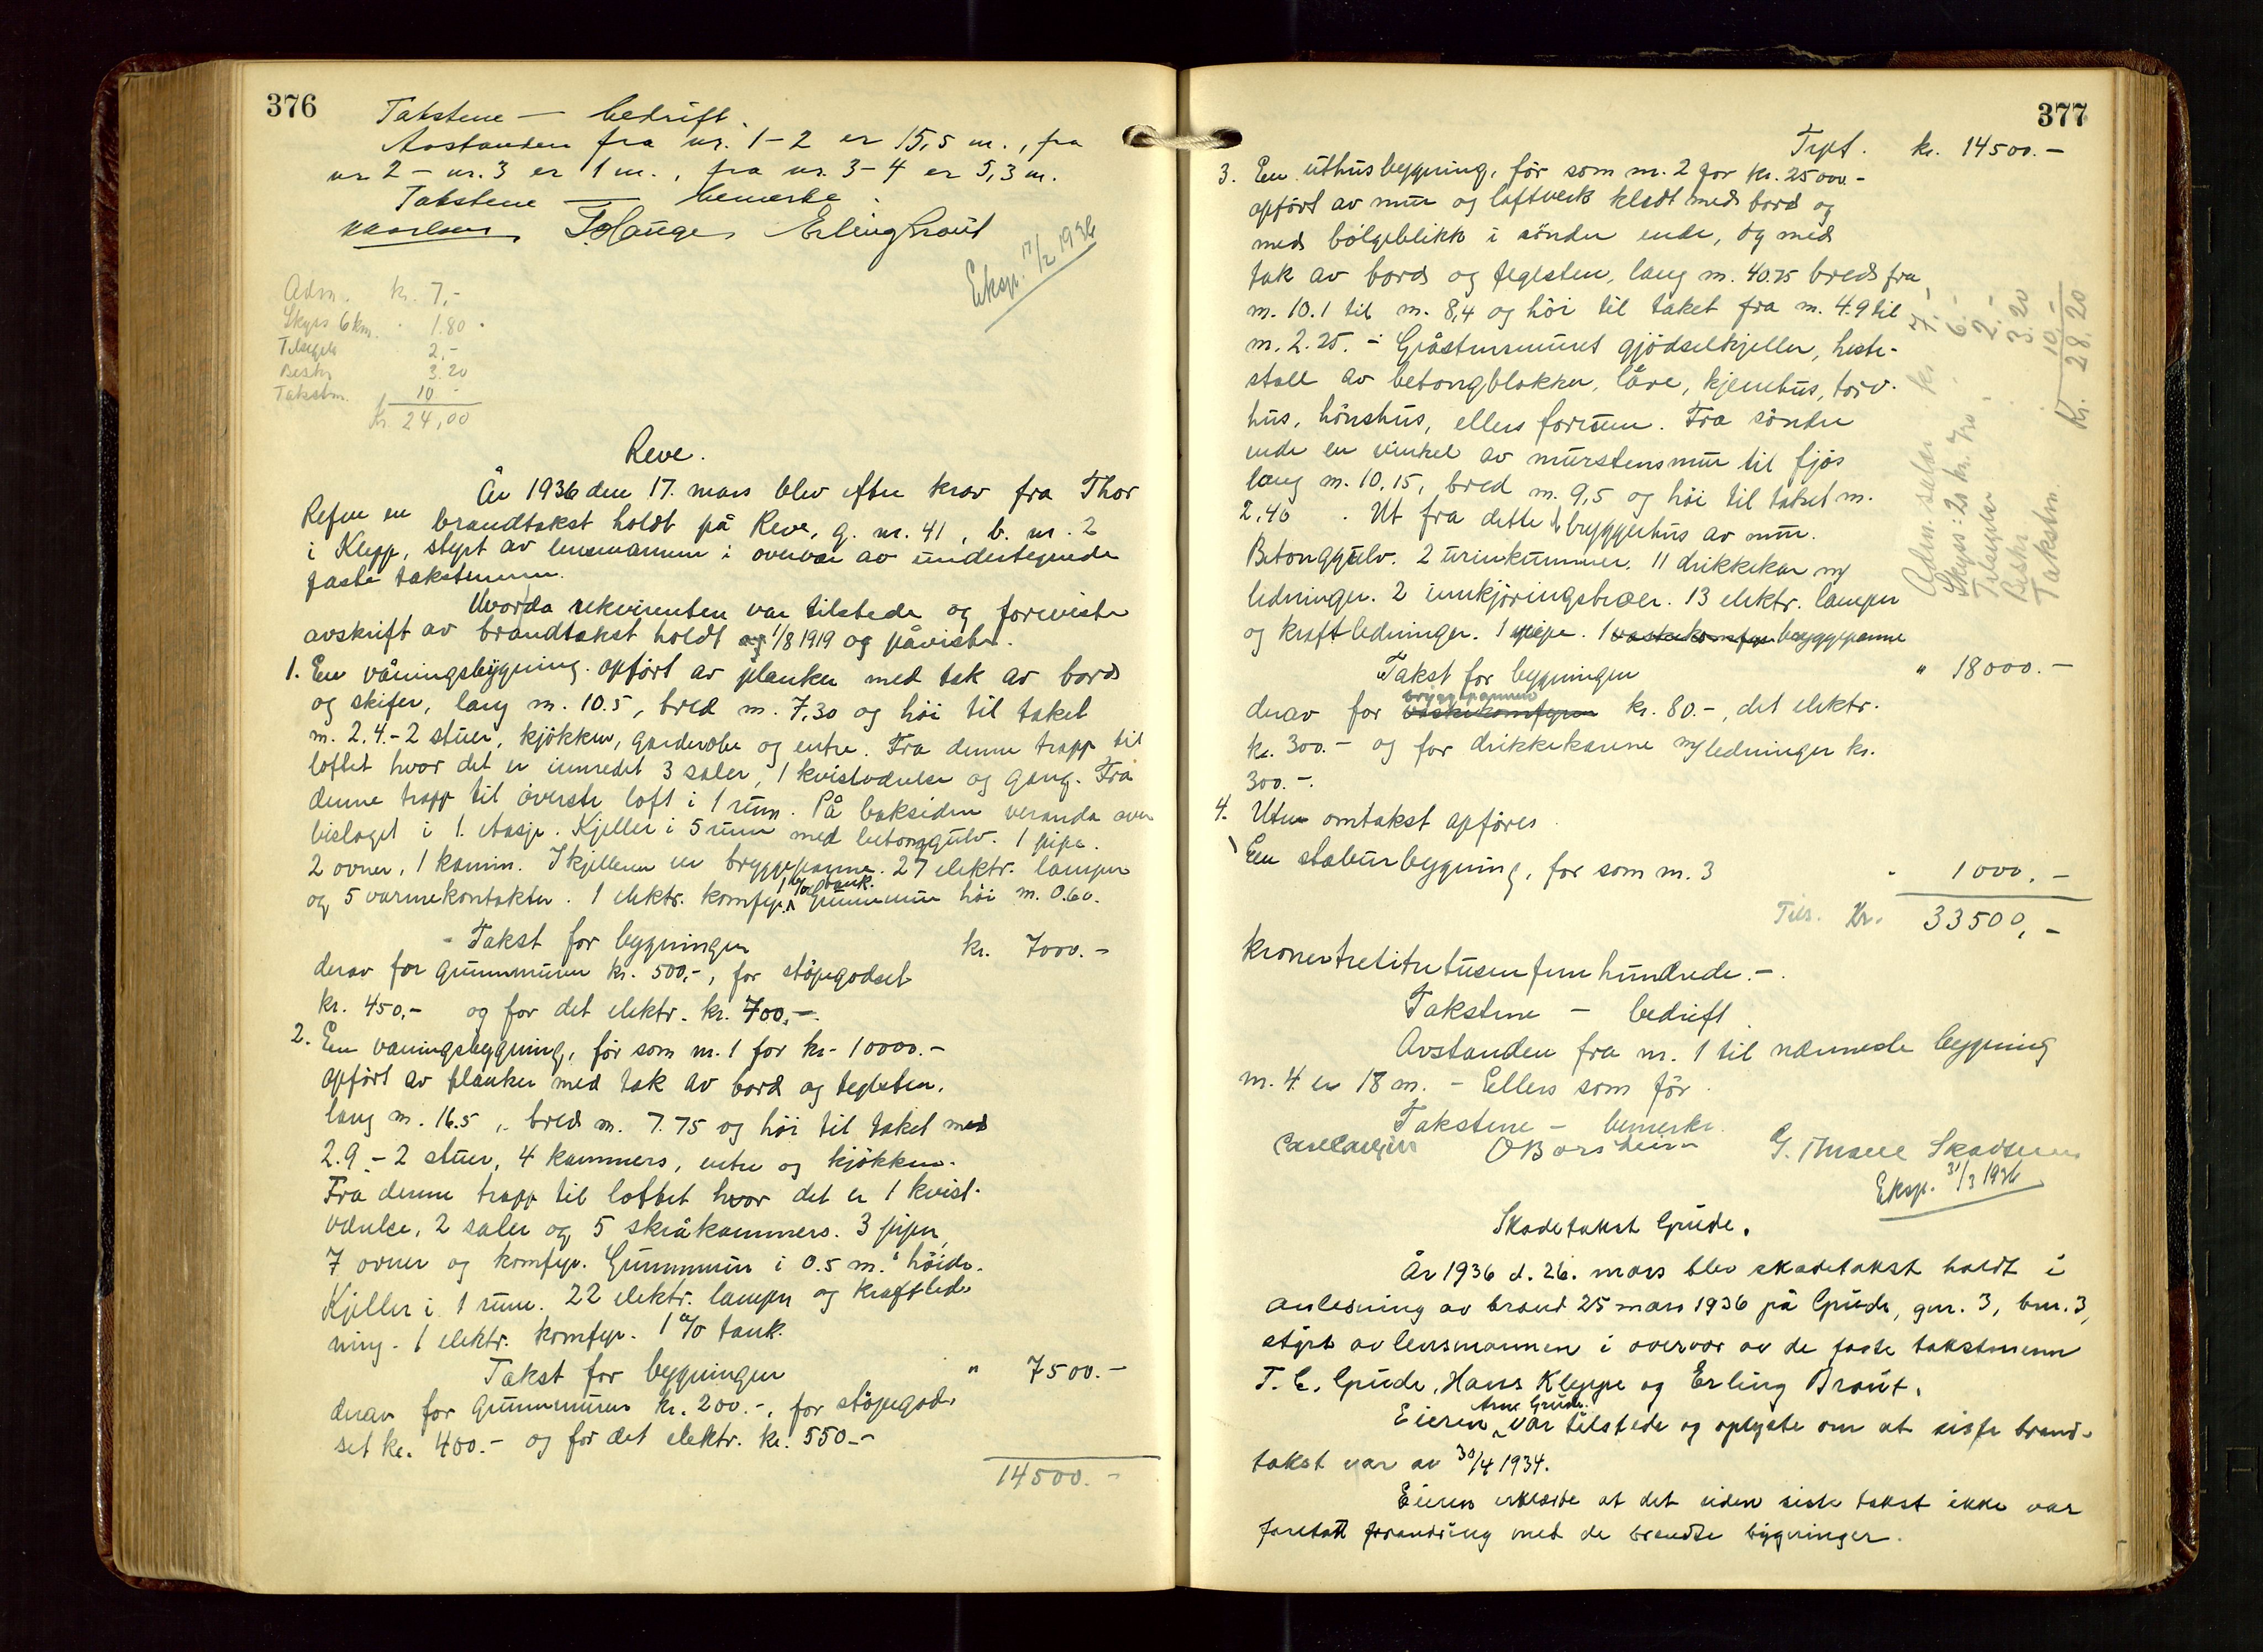 376
Takstene — bedrift.
Avstanden fra nr. 1-2 er 15,5 m., fra
nr 2 - nr. 3 er 1 m., fra nr. 3-4 er 5,3 m.
Takstene — bemerke.
T. Hauge Erling Braut
Eksp. 17/2 1936
Adm. kr. 7,-
Skyss 6 km. " 1.80
Tilsegels 2,-
Beskr 3.20
Takstm. 10 -
Kr. 24,00
Reve.
År 1936 den 17. mars blev efter krav fra Thor
Refve en brandtakst holdt på Reve, g. nr. 41, b. nr. 2
i Klepp, styrt av lensmannen i overvær av undertegnede
faste takstmenn.
Hvorda rekvirenten var tilstede og foreviste
avskrift av brandtakst holdt 1/8 1919 og påviste.
1. En våningsbygning opført av planker med tak av bord
og skifer, lang m. 10.5, bred m. 7,30 og høi til taket
m. 2.4. - 2 stuer, kjøkken, garderobe og entre. Fra denne trapp til
loftet hvor det er innredet 3 saler, 1 kvistværelse og gang. Fra
denne trapp til øverste loft i 1 rum. På baksiden veranda over
bislaget i 1. etasje. Kjeller i 5 rum med betonggulv. 1 pipe.
2 ovner, 1 kamin. I kjelleren er bryggepanne. 27 elektr. lamper
og 5 varmekontakter. 1 elektr. komfyr. 1 w/c tank. Grunnmur høi m. 0.60.
- Takst for bygningen kr. 7000.-
derav for grunnmuren kr. 500,-, for støpegodset
kr. 450,- og for det elektr. kr. 700,-.
2. En våningsbygning, før som nr. 1 for kr. 10000.-
opført av planker med tak av bord og teglsten,
lang m. 16.5, bred m. 7.75 og høi til taket med
2.9. - 2 stuer, 4 kammers, entre og kjøkken.
Fra denne trapp til loftet hvor det er 1 kvist-
værelse, 2 saler og 5 skråkammers. 3 piper,
7 ovner og komfyr. Grunnmur i 0.5 m.s høide.
Kjeller i 1 rum. 22 elektr. lamper og kraftled-
ning. 1 elektr. komfyr. 1 w/c tank.
Takst for bygningen " 7500.-
derav for grunnmuren kr. 200.-, for støpegod-
set kr. 400.- og for det elektr. kr. 550.-
14500.-
377
Trpt. kr. 14500.-
3. En uthusbygning, før som nr. 2 for kr. 25000.-
opført av mur og laftverk kledt med bord og
med bølgeblikk i søndre ende, og med
tak av bord og teglsten, lang m. 40.75 bred fra
m. 10.1 til m. 8,4 og høi til taket fra m. 4.9 til
m. 2.25. - Gråstensmuret gjødselkjeller, heste-
stall av betongblokker, låve, kjenehus, torv-
hus, hønshus, ellers forrum. Fra søndre
ende en vinkel av murstensmur til fjøs
lang m. 10,15, bred m. 9,5 og høi til taket m.
2,40. Ut fra dette bryggerhus av mur.
Betonggulv. 2 urinkummer. 11 drikkekar m/
ledninger. 2 innkjøringsbroer. 13 elektr. lamper
og kraftledninger. 1 pipe. 1 vaskekomfyr bryggepanne
Takst for bygningen " 18000.-
bryggepannen
derav for vaskekomfyren kr. 80.-, det elektr.
kr. 300.- og for drikkekarene m/ledninger kr.
300.-.
4. Uten omtakst opføres
En stabursbygning, før som nr. 3 " 1000,-
Tils. Kr. 33500,-
kroner trettitretusen fem hundrede.-.
Takstene - bedrift.
Avstanden fra nr. 1 til nærmeste bygning
nr. 4 er 18 m. - Ellers som før.
Takstene - bemerke.
O Borsheim G. Thrane Skadsem
Eksp. 31/3 1936
Adm. selær kr. 7,-
Skyss: 20 km. " 6.-
Tilsegeler " 2.-
Beskr 3.20
Takstm. 10.-
Kr. 28.20
Skadetakst Grude.
År 1936 d. 26. mars blev skadetakst holdt i
anledning av brand 25 mars 1936 på Grude, gnr. 3, bnr. 3,
styrt av lensmannen i overvær av de faste takstmenn
T. C. Grude, Hans Kleppe og Erling Braut.
Arne Grude.
Eieren var tilstede og oplyste om at siste brand-
takst var av 30/4 1934.
Eieren erklærte at det siden siste takst ikke var
foretatt forandring med de brendte bygninger.